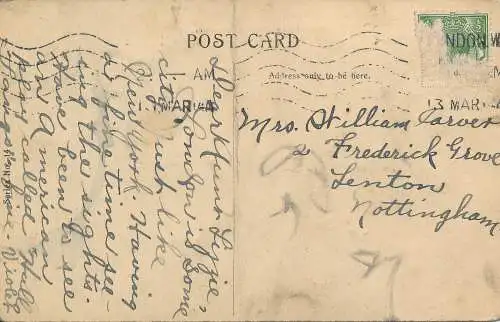 POST CARD
Address only to be here.
NDON W
AM
13 MAR 14
13 MAR
Dear Aunt Lizzie,
London is some
city. Just like
New York. Having
a fine time see-
ing the sights.
Have been to see
an American
play called "Full
Violet
Mrs. William Carver
2 Frederick Grove
Lenton
Nottingham